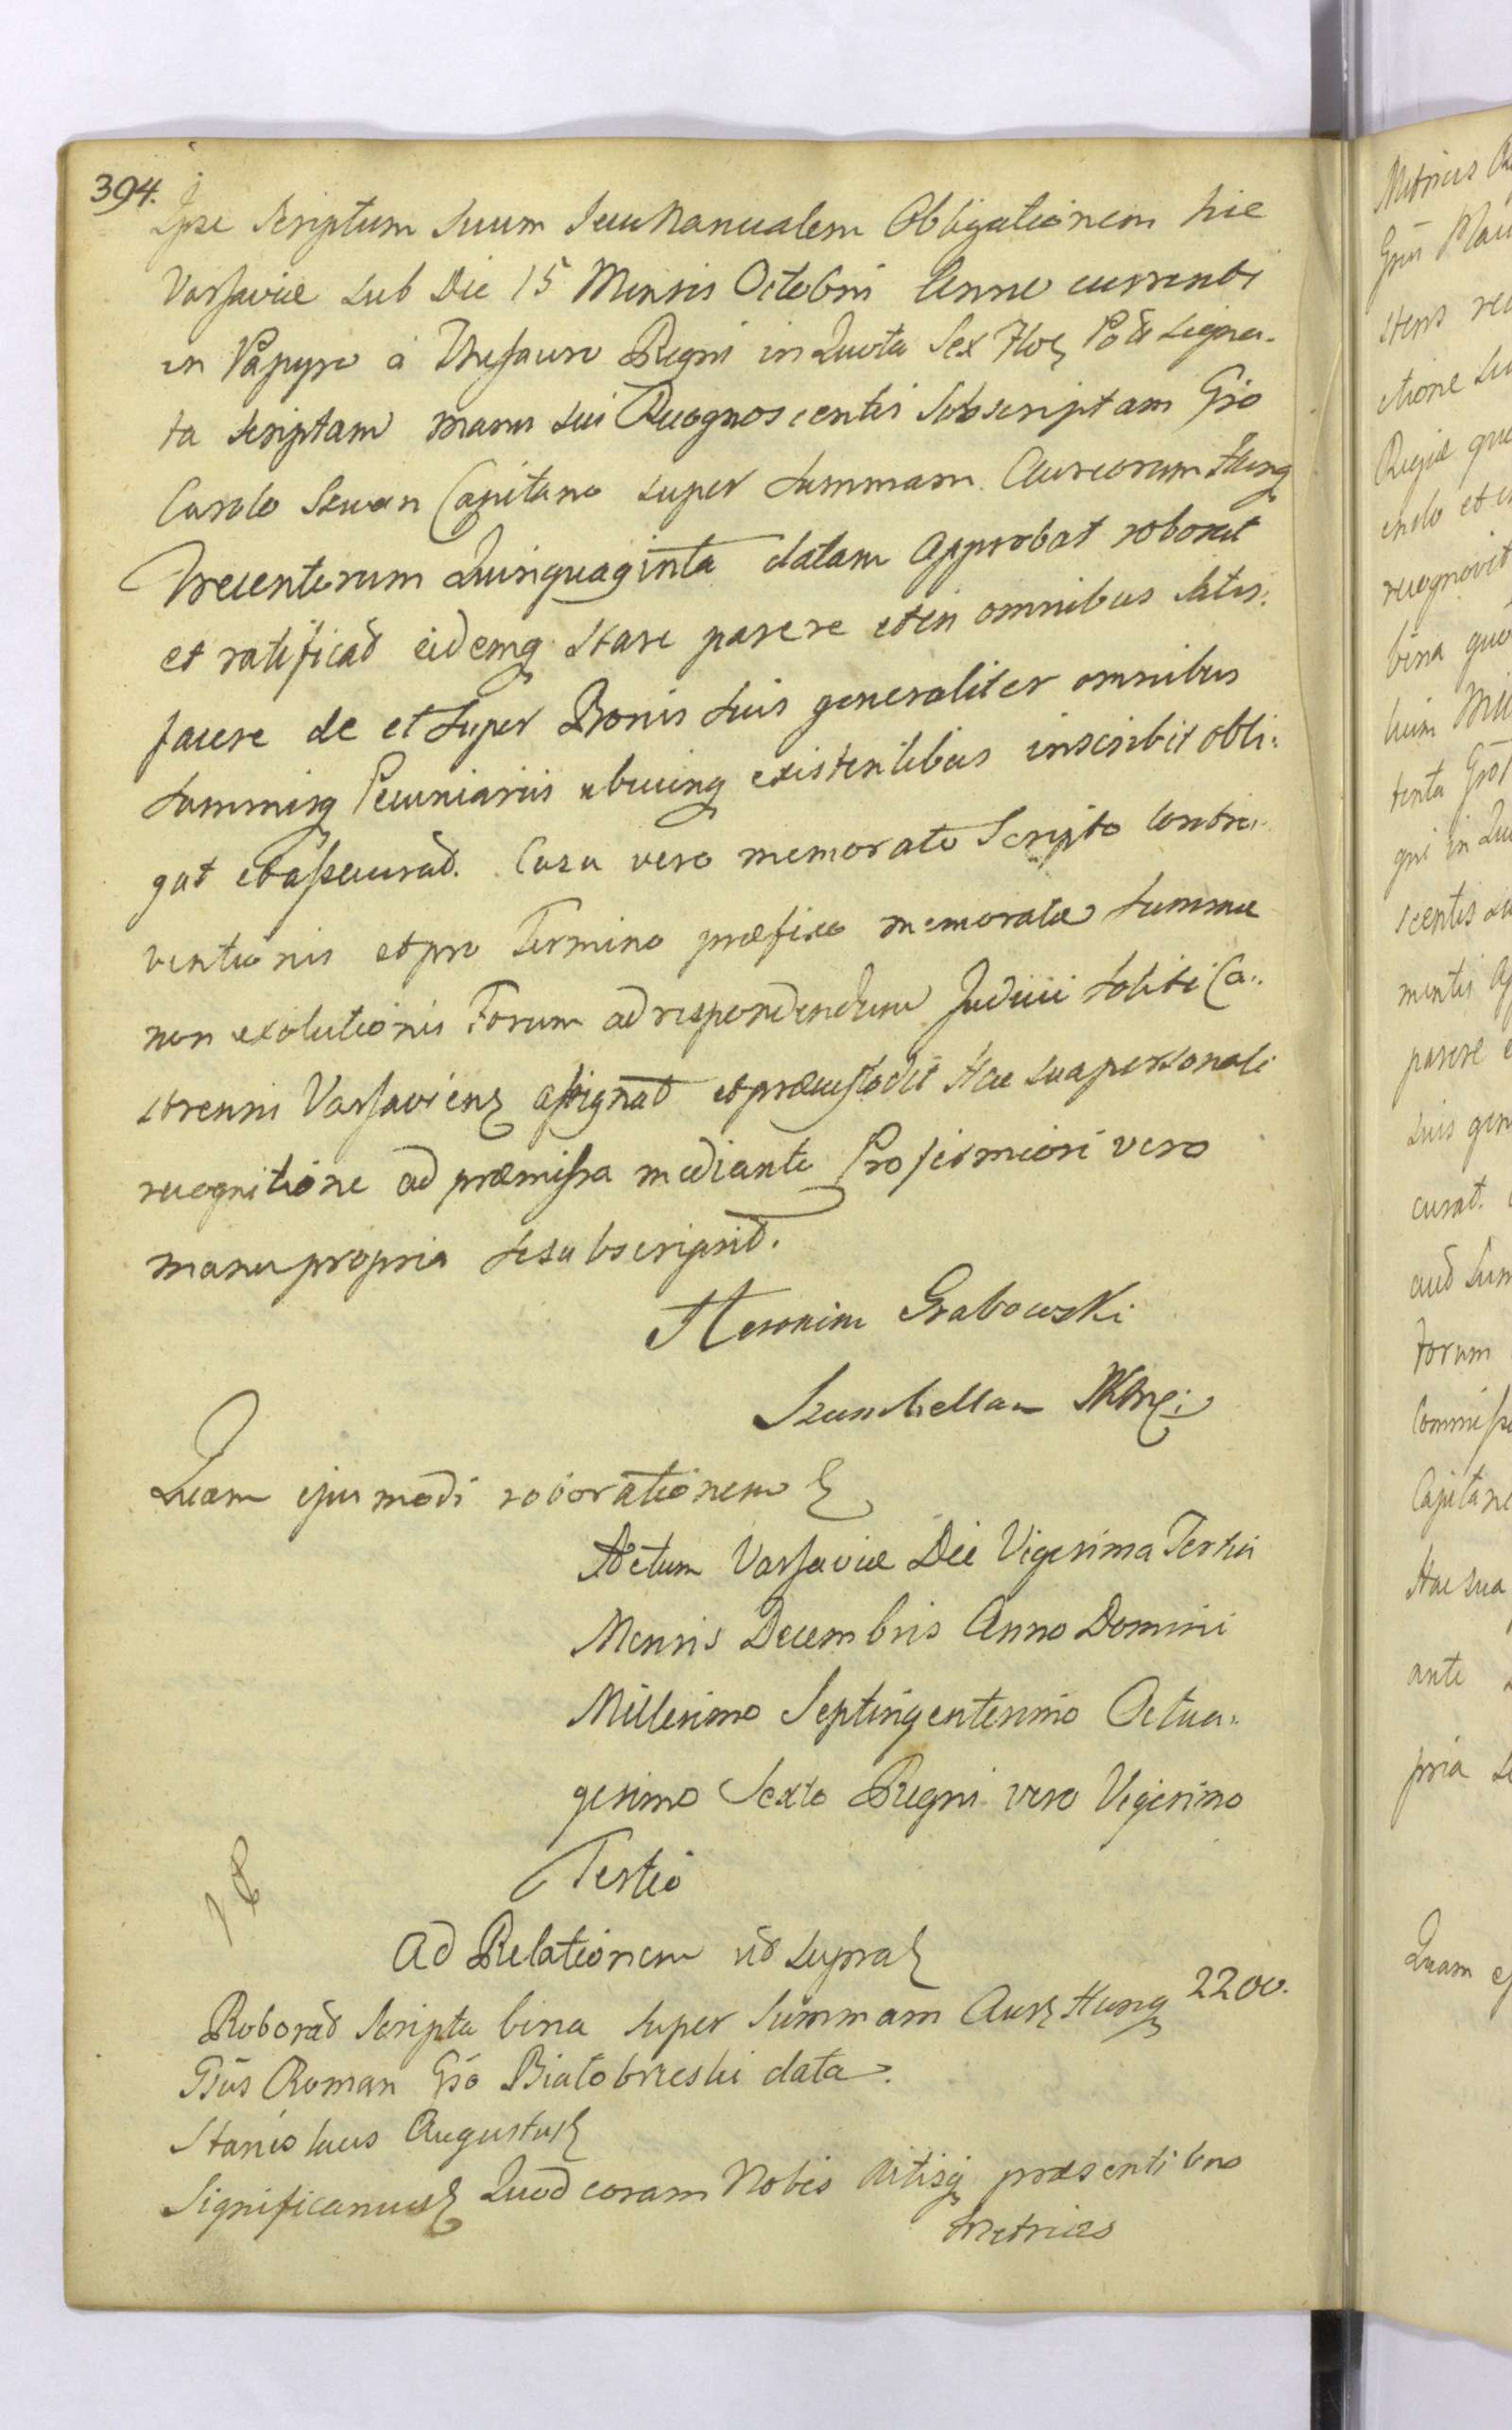 394.
Ipse Scriptum Suum Seu Manualem Obligationem hic
Varsaviæ Sub Die 15 Mensis Octobris Anno currenti
in Papyro à Thesauro Regni in Quota Sex Flor Pol Signa-
ta scriptam manu sui Recognoscentis Subscriptam Gso
Carolo Szwan Capitano super Summam Aureorum Hung
Trecentorum Quinquaginta datam approbat roborat
et ratificat eidemq stare parere et in omnibus satis:
facere de et Super Bonis Suis generaliter omnibus
Summisq Pecuniariis ubicunq existentibus inscribit obli:
gat et assecurat. Casu vero memorato Scripto Contra-
ventionis et pro Termino præfixo memoratæ Summæ
non exolutionis Forum ad respondendum Judicii Soliti Ca:
strensis Varsaviens assignat et præcustodit Hac sua personali
recognitione ad præmissa mediante Pro firmiori vero
manu propria se subscripsit.
Heronim Grabowski
Szambellan JKMci
Quam ejusmodi roborationem
Actum Varsaviæ Die Vigesima Tertia
Mensis Decembris Anno Domini
Millesimo Septingentesimo Octua-
gesimo Sexto Regni vero Vigesimo
Tertio
Ad Relationem ut supra
Roborat Scripta bina super Summam Aur Hung 2200.
Gsus Roman Gso Białobrzeski data.
Stanislaus Augustus
Significamus Quod coram Nobis Actisq præsentibus
Metrices
Metrices
Gsus
stens
ctione
Regiæ
endo et
recognovit
bina
tenta
scentis
mentis
parere
suis gen
curat.
aut Sum
Forum
Commissi
Capitane
Hac sua
ante
pria
Quam ej